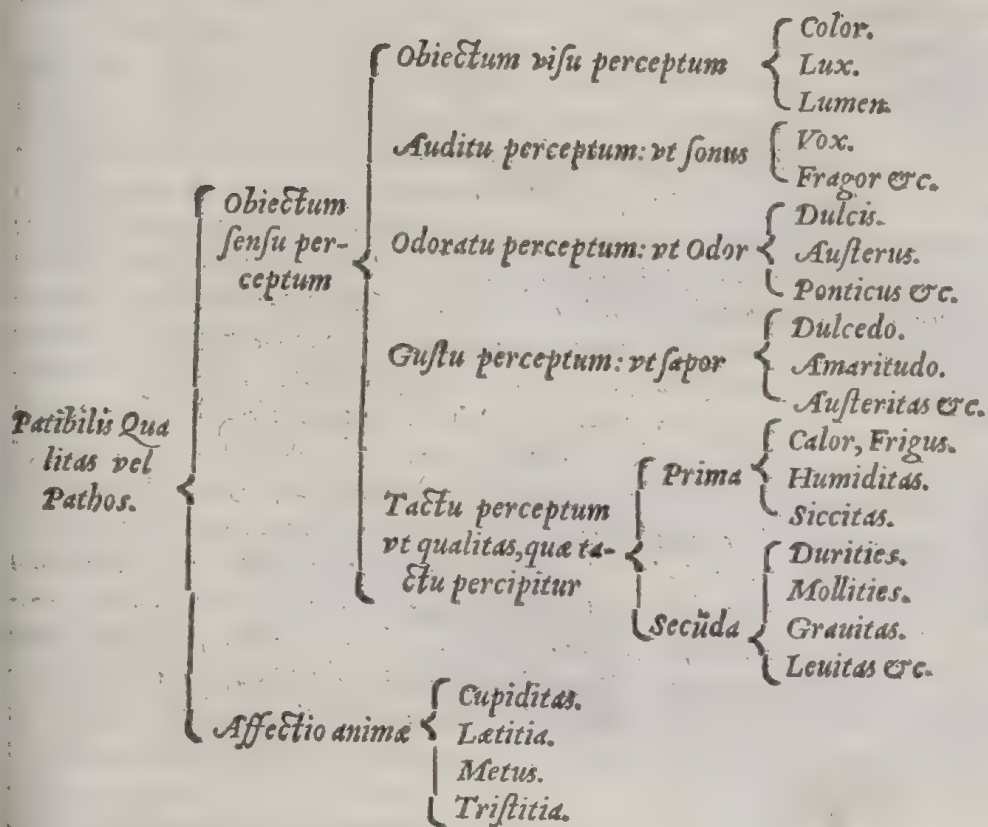 Patibilis Qua
litas vel
Pathos.
Obiectum
ſenſu per-
ceptum
Obiectum viſu perceptum
Color.
Lux.
Lumen.
Auditu perceptum: vt ſonus
Vox.
Fragor &c.
Odoratu perceptum: vt Odor
Dulcis.
Auſterus.
Ponticus &c.
Guſtu perceptum: vt ſapor
Dulcedo.
Amaritudo.
Auſteritas &c.
Tactu perceptum
vt qualitas, quæ ta-
ctu percipitur
Prima
Calor, Frigus.
Humiditas.
Siccitas.
Secūda
Durities.
Mollities.
Grauitas.
Leuitas &c.
Affectio animæ
Cupiditas.
Lætitia.
Metus.
Triſtitia.